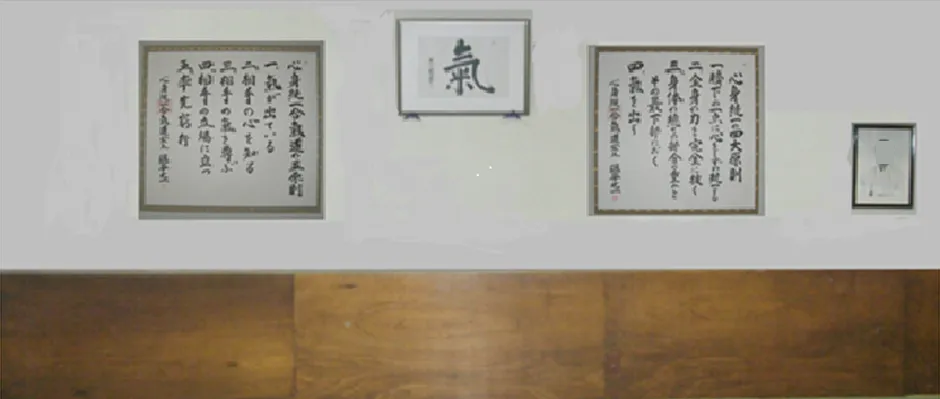 心身統一合氣道の五原則
一、氣が出ている
二、相手の心を知る
三、相手の氣を尊ぶ
四、相手の立場に立つ
五、率先窮行
心身統一合氣道宗主 藤平光一
氣
心身統一の四大原則
一、臍下の一点に心をしずめ統一する
二、全身の力を完全に抜く
三、身体の総ての部分の重みを
その最下部におく
四、氣を出す
心身統一合氣道宗主 藤平光一